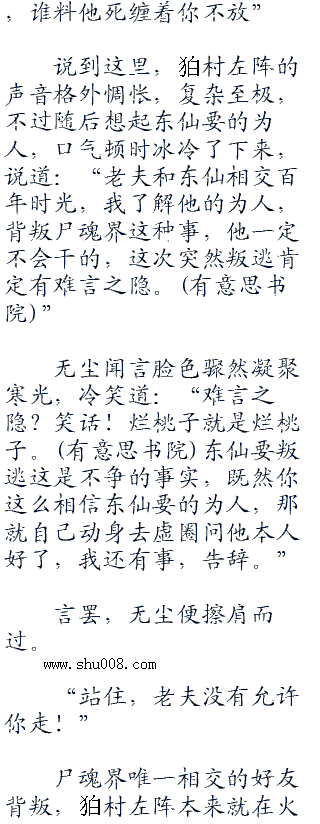 ，谁料他死缠着你不放”
说到这里，狛村左阵的
声音格外惆怅，复杂至极，
不过随后想起东仙要的为
人，口气顿时冰冷了下来，
说道：“老夫和东仙相交百
年时光，我了解他的为人，
背叛尸魂界这种事，他一定
不会干的，这次突然叛逃肯
定有难言之隐。(有意思书
院)”
无尘闻言脸色骤然凝聚
寒光，冷笑道：“难言之
隐？笑话！烂桃子就是烂桃
子。(有意思书院)东仙要叛
逃这是不争的事实，既然你
这么相信东仙要的为人，那
就自己动身去虚圈问他本人
好了，我还有事，告辞。”
言罢，无尘便擦肩而
过。
www.shu008.com
“站住，老夫没有允许
你走！”
尸魂界唯一相交的好友
背叛，狛村左阵本来就在火